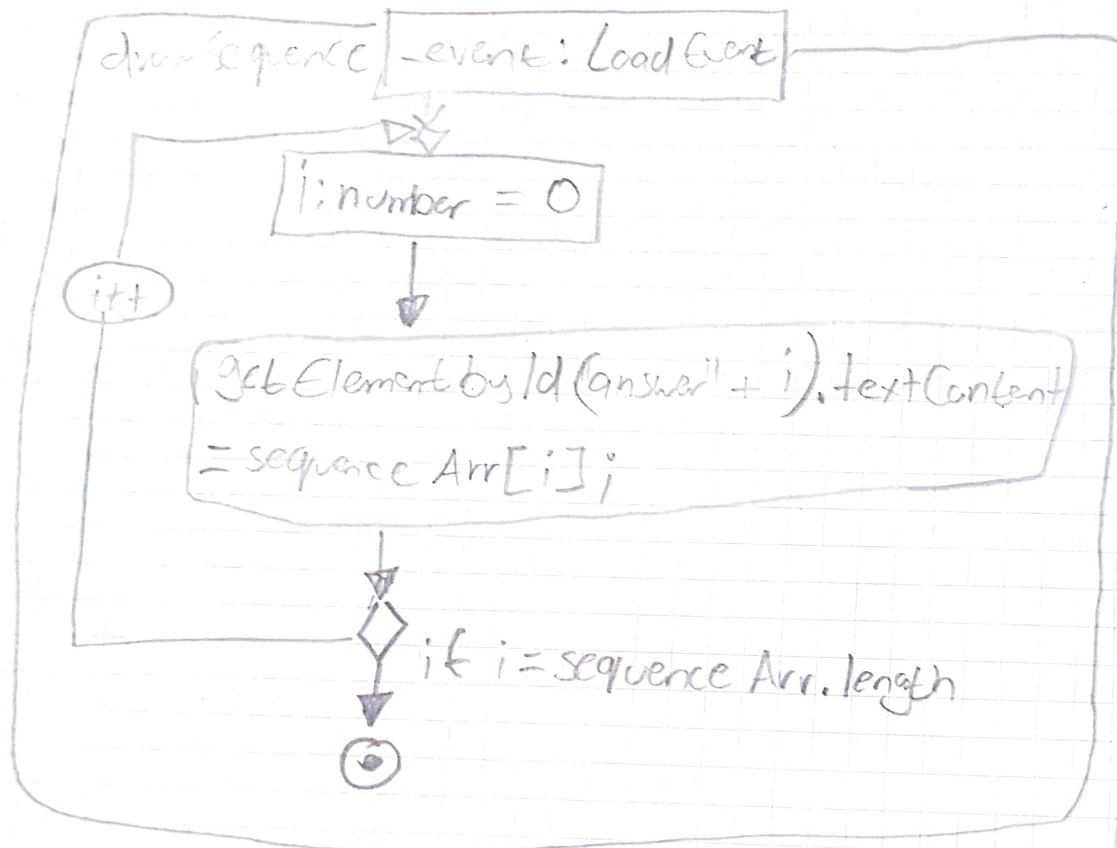 drawSequence
_event: LoadEvent
i: number = 0
i++
getElementbyId(answer" + i).textContent
= sequenceArr[i];
if i = sequence Arr.length